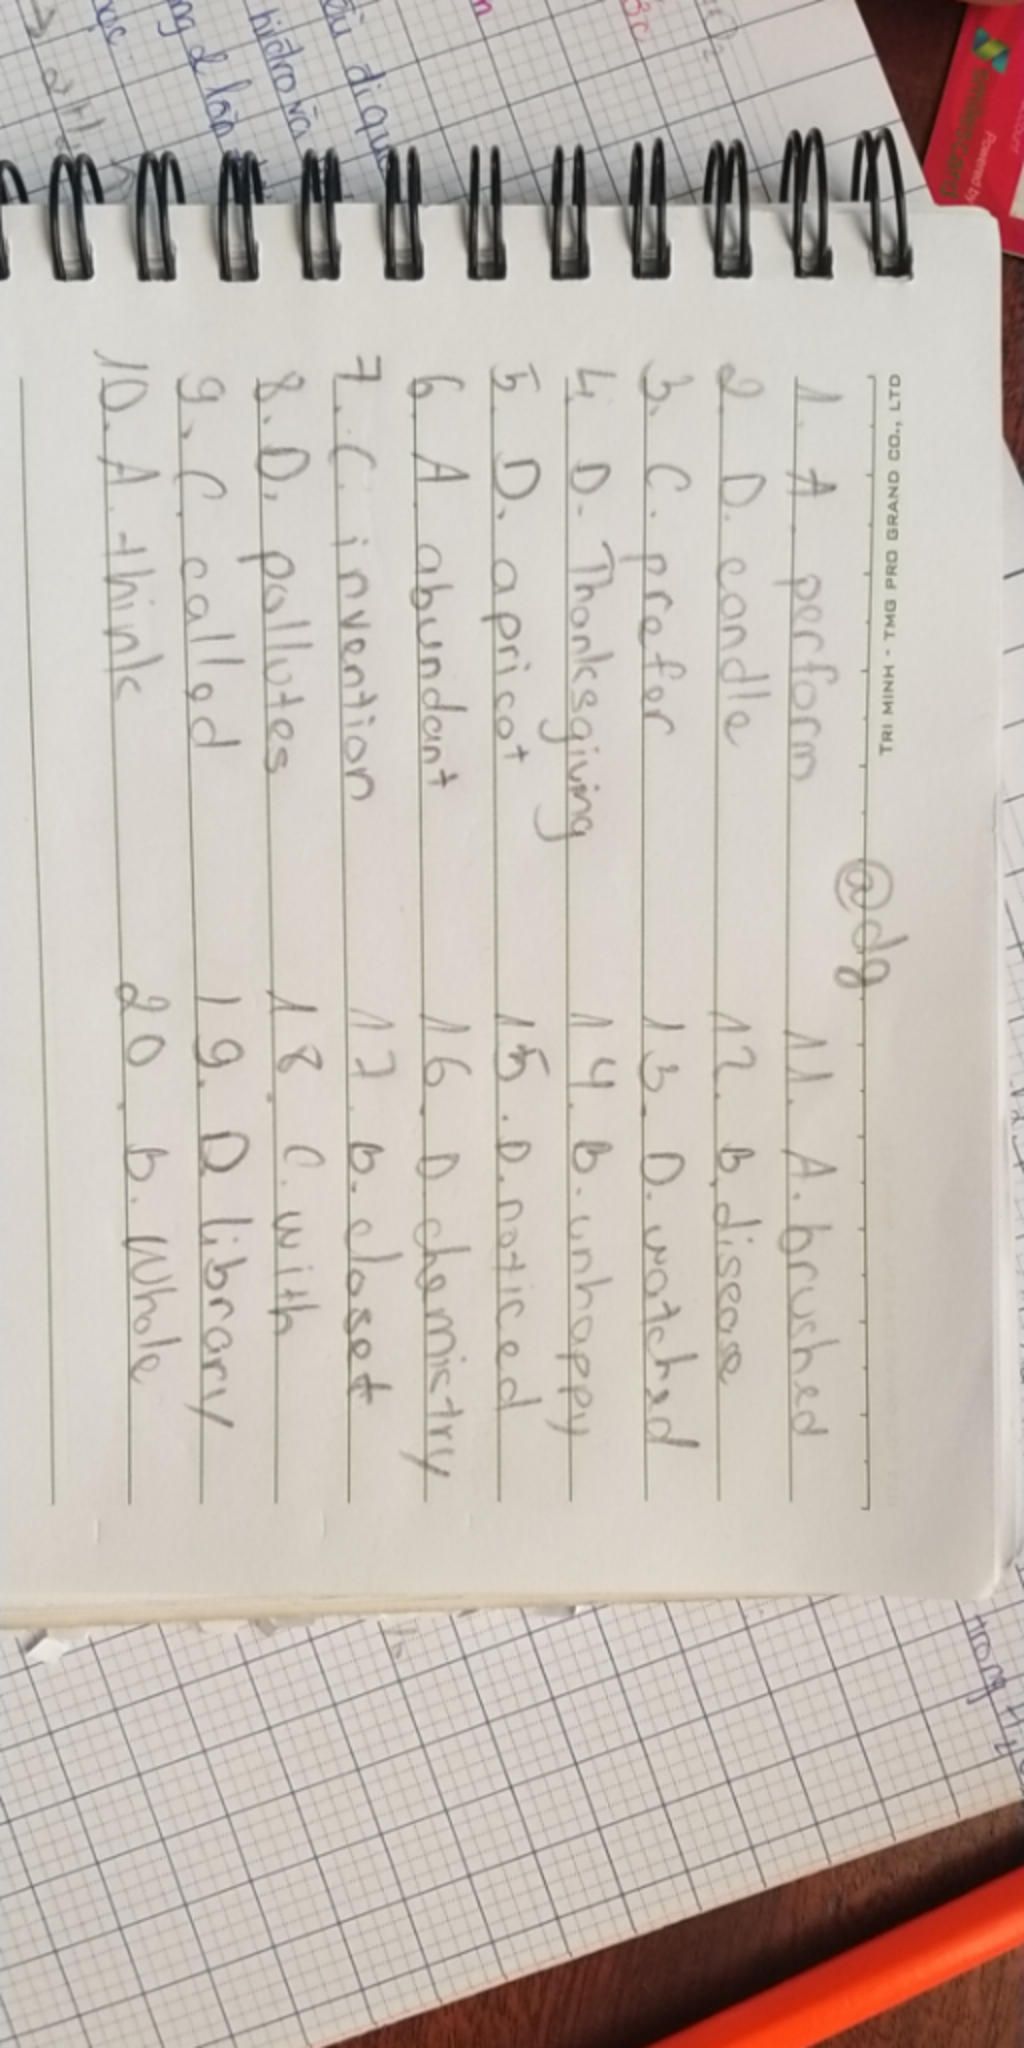 TRI MINH - TMG PRO GRAND CO., LTD
@dg
1. A. perform
2. D. candle
3. C. prefer
4. D. Thanksgiving
5. D. apricot
6. A. abundant
7. C. invention
8. D. pollutes
9. C. called
10. A. think
11. A. brushed
12. B. disease
13. D. watched
14. B. unhappy
15. D. noticed
16. D. chemictry
17. B. closet
18. C. with
19. D library
20. B. Whole
smilescard
Powered by
ầu đi qua
hiđro và
ng 2 lần
trong